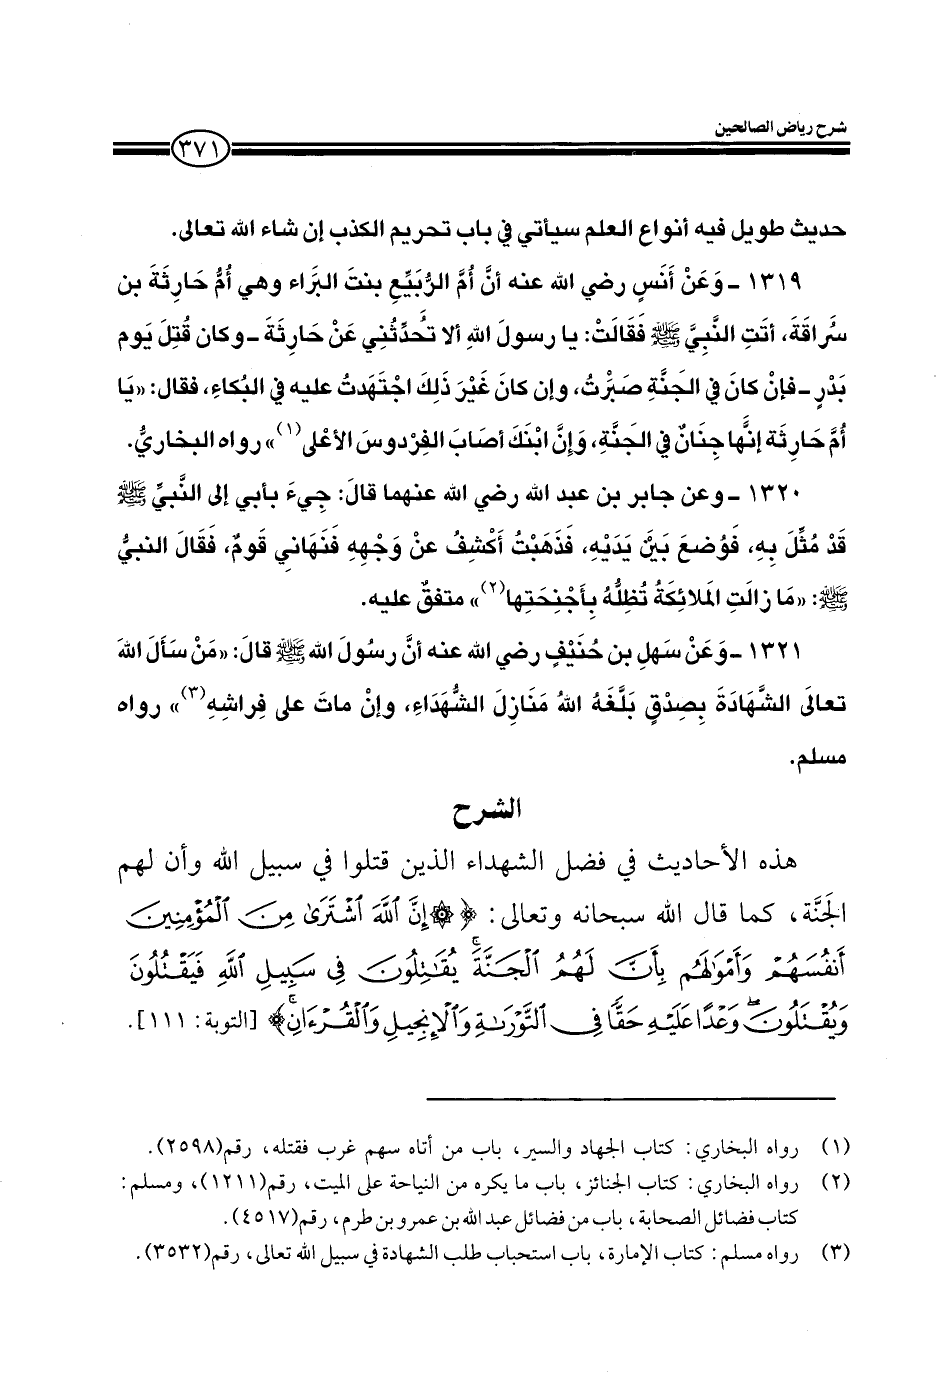 شرح رياض الصالحين
٣٧١
حديث طويل فيه أنواع العلم سيأتي في باب تحريم الكذب إن شاء الله تعالى.
١٣١٩ - وَعَنْ أَنَسٍ رضي الله عنه أنَّ أمَّ الرُّبَيِّعِ بنتَ البَرَاء وهي أُمُّ حَارِثَةَ بن
سُرَاقَةَ، أتَتِ النَّبِيَّ ﷺ فَقَالَتْ: يا رسولَ اللهِ ألا تُحَدِّثُني عَنْ حَارِثَةَ - وكان قُتِلَ يَوم
بَدْرٍ - فإنْ كانَ في الجَنَّةِ صَبَرْتُ، وإن كانَ غَيْرَ ذَلِكَ اجْتَهَدتُ عليه في البُكاءِ، فقال: «يَا
أُمَّ حَارِثَة إنَّها جِنَانٌ في الجَنَّةِ، وَإِنَّ ابْنَكَ أصَابَ الفِرْدوسَ الأعْلى(١)» رواه البخاريُّ.
١٣٢٠ - وعن جابر بن عبد الله رضي الله عنهما قالَ: جِيءَ بأبي إلى النَّبيِّ ﷺ
قَدْ مُثِّلَ بِهِ، فَوُضعَ بَيْنَ يَدَيْهِ، فَذَهَبْتُ أكْشِفُ عنْ وَجْهِهِ فَنَهَاني قَومٌ، فَقَالَ النبيُّ
ﷺ: «مَا زالَتِ المَلائِكَةُ تُظِلُّهُ بِأَجْنِحَتِها(٢)» متفقٌ عليه.
١٣٢١ - وَعَنْ سَهلِ بن حُنَيْفٍ رضي الله عنه أنَّ رسُولَ الله ﷺ قالَ: «مَنْ سَأَلَ اللهَ
تعالَى الشَّهَادَةَ بِصِدْقٍ بَلَّغَهُ اللهُ مَنَازِلَ الشُّهَدَاءِ، وإنْ ماتَ على فِراشِهِ(٣)» رواه
مسلم.
الشرح
هذه الأحاديث في فضل الشهداء الذين قتلوا في سبيل الله وأن لهم
الجنَّة، كما قال الله سبحانه وتعالى: ﴿۞ إِنَّ ٱللَّهَ ٱشْتَرَىٰ مِنَ ٱلْمُؤْمِنِينَ
أَنفُسَهُمْ وَأَمْوَٰلَهُم بِأَنَّ لَهُمُ ٱلْجَنَّةَ ۚ يُقَٰتِلُونَ فِى سَبِيلِ ٱللَّهِ فَيَقْتُلُونَ
وَيُقْتَلُونَ ۖ وَعْدًا عَلَيْهِ حَقًّا فِى ٱلتَّوْرَىٰةِ وَٱلْإِنجِيلِ وَٱلْقُرْءَانِ ۚ﴾ [التوبة: ١١١].
(١) رواه البخاري: كتاب الجهاد والسير، باب من أتاه سهم غرب فقتله، رقم(٢٥٩٨).
(٢) رواه البخاري: كتاب الجنائز، باب ما يكره من النياحة على الميت، رقم(١٢١١)، ومسلم:
كتاب فضائل الصحابة، باب من فضائل عبد الله بن عمرو بن طرم، رقم(٤٥١٧).
(٣) رواه مسلم: كتاب الإمارة، باب استحباب طلب الشهادة في سبيل الله تعالى، رقم(٣٥٣٢).